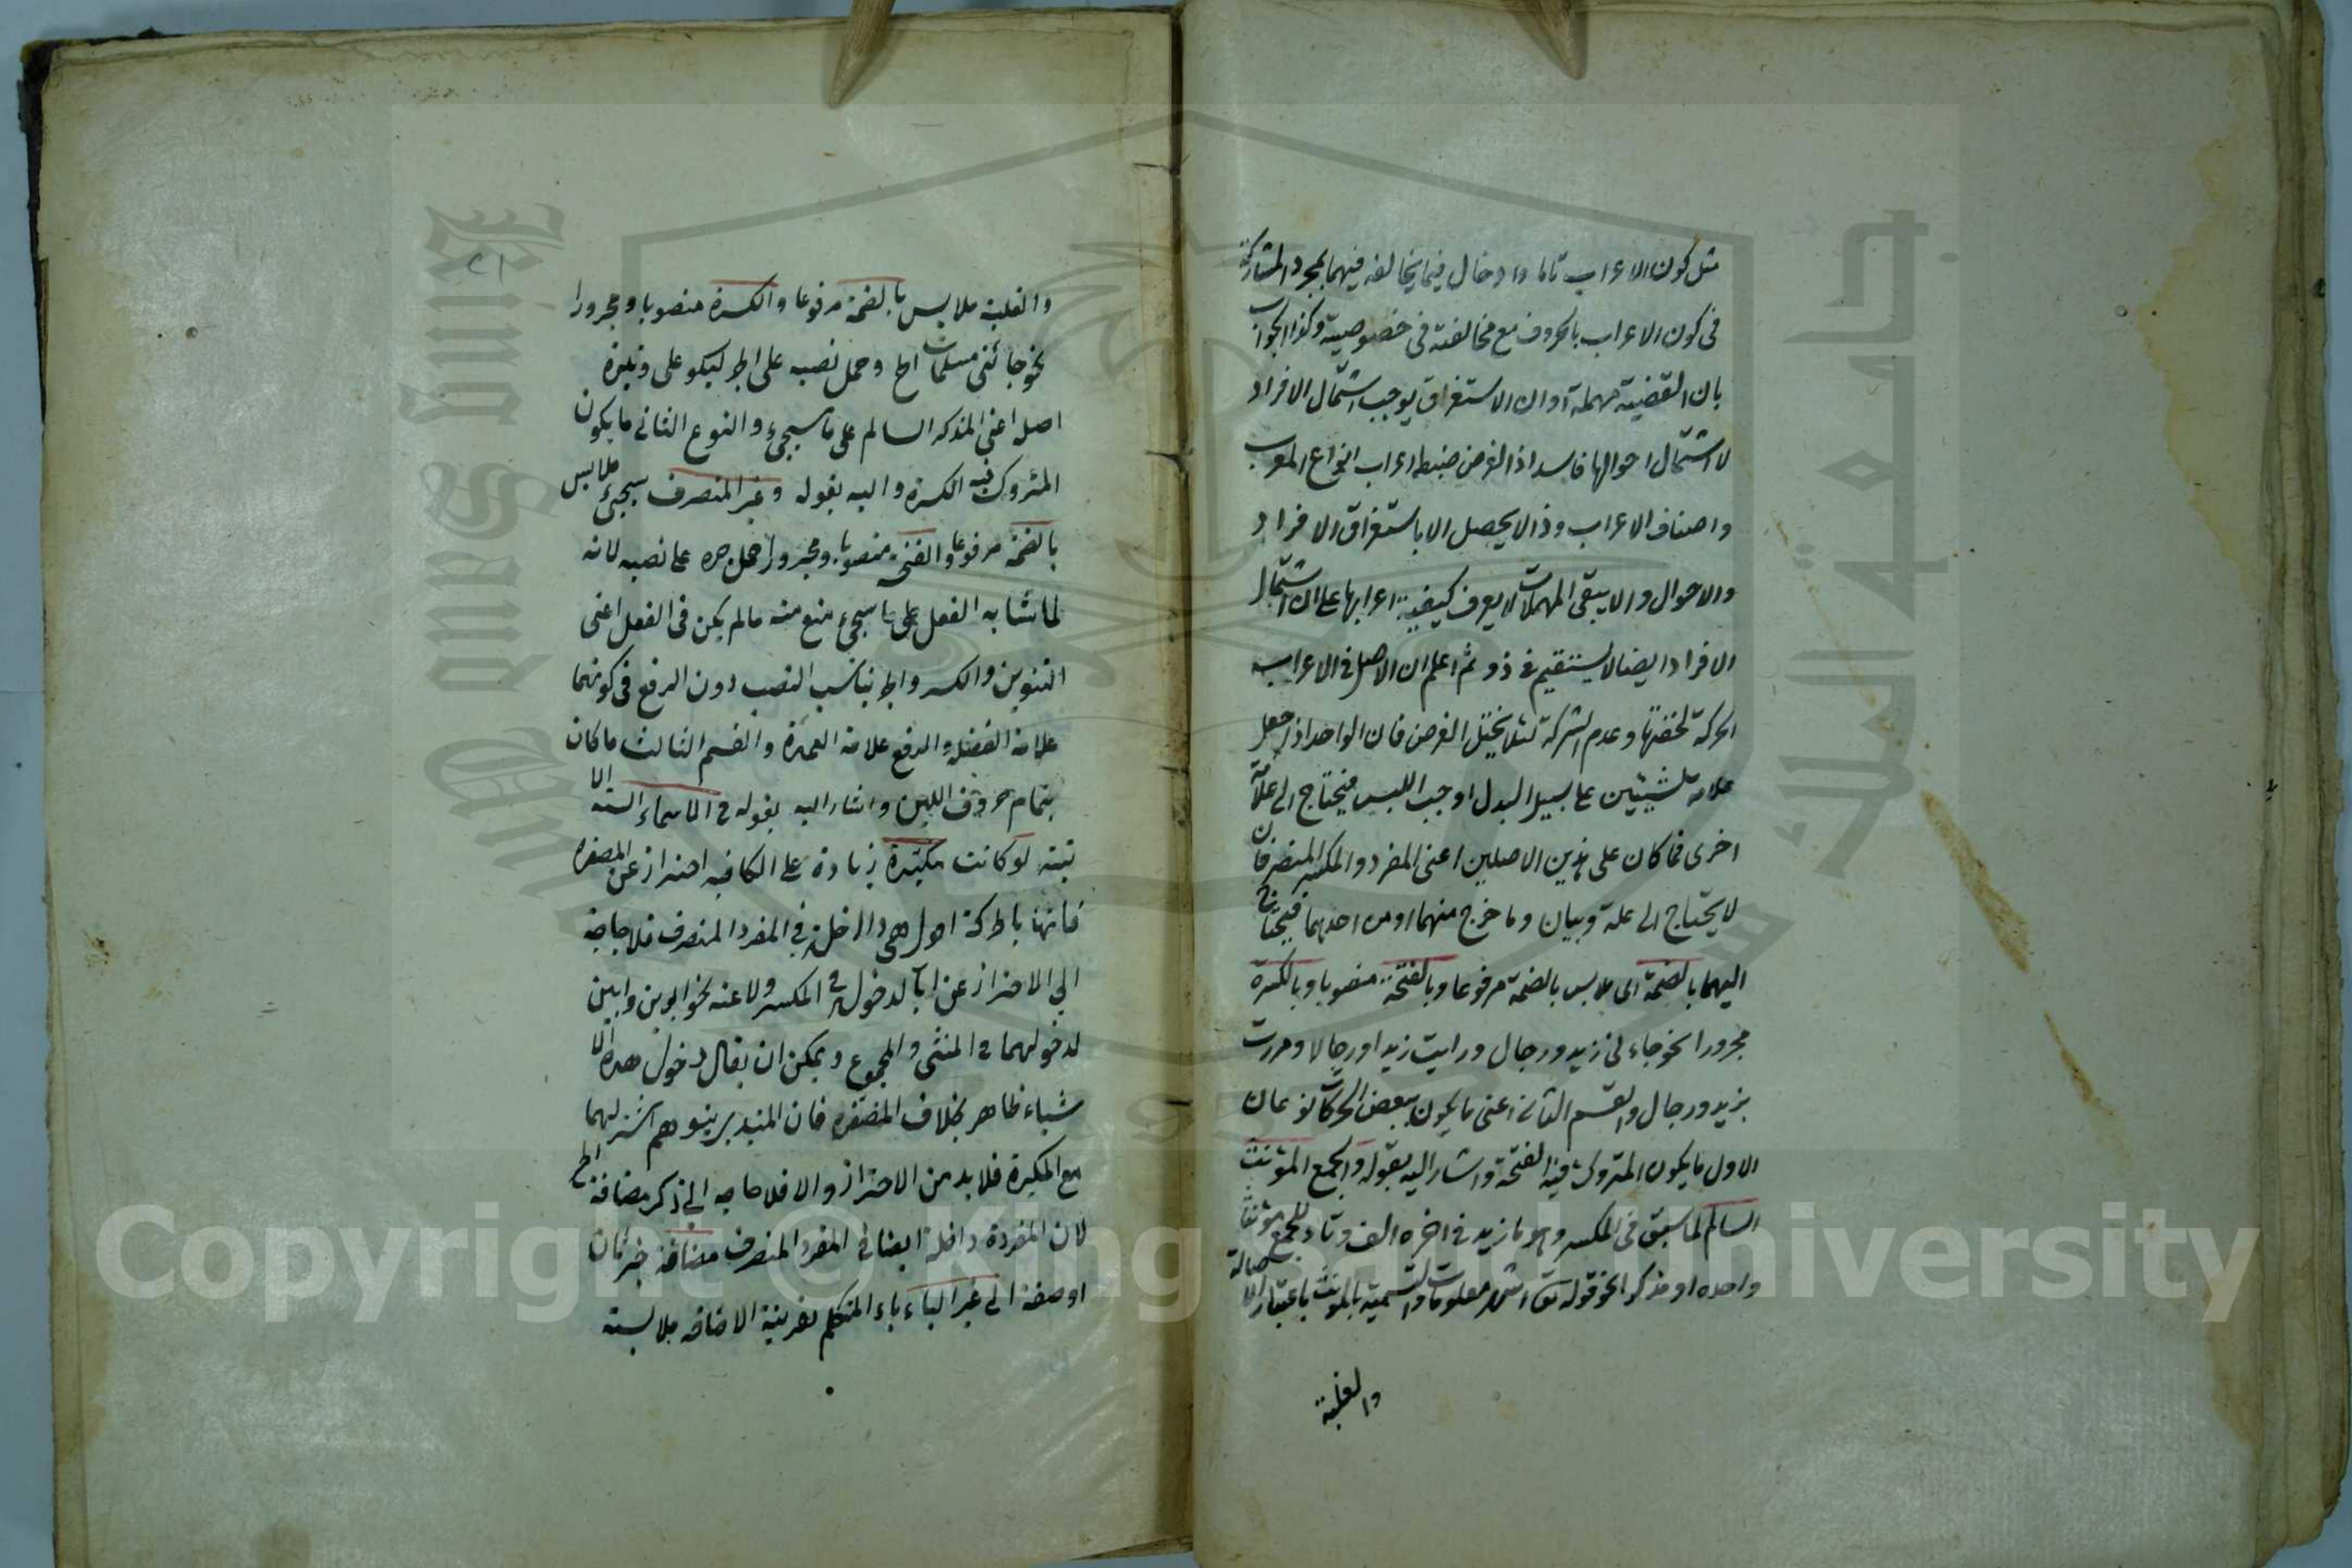 مثل كون الاعراب تاما وادخال فيما يخالفه فيهما بمجرد المشاركة
فى كون الاعراب بالحروف مع مخالفته فى خصوصيته وكذا الجواب
بان القضية مهملة اوان الاستغراق يوجب اشتمال الافراد
لا اشتمال احوالها فاسد اذ الغرض ضبط اعراب انواع المعرب
واصناف الاعراب وذا لا يحصل الا باستغراق الافراد
والاحوال والا يبقى المهملات لا يعرف كيفية اعرابها على ان اشتمال
الافراد ايضا لا يستقيم فى ذو ثم اعلم ان الاصل فى الاعراب
الحركة لخفتها وعدم الشركة لئلا يختل الغرض فان الواحد اذا جعل
علامة لشيئين على سبيل البدل اوجب اللبس فيحتاج الى علامة
اخرى فما كان على هذين الاصلين اعنى المفرد والمكسر المنصرفان
لا يحتاج الى علة وبيان وما خرج منهما او من احدهما فيحتاج
اليهما بالضمة اى ملابس بالضمة مرفوعا وبالفتحة منصوبا وبالكسرة
مجرورا نحو جاءنى زيد ورجال ورايت زيدا ورجالا ومررت
بزيد ورجال والقسم الثانى اعنى ما يكون ببعض الحركات نوعان
الاول ما يكون المتروك فيه الفتحة واشار اليه بقوله والجمع المؤنث
السالم لما سبق فى المكسر وهو ما زيد فى اخره الف وتاء للجمع مؤنثا
واحده او مذكرا نحو قوله تع اشهر معلومات والتسمية بالمونث باعتبار الاصالة
والغلبة
٢١
والغلبة ملابس بالضمة مرفوعا والكسرة منصوبا ومجرورا
نحو جائنى مسلمات الخ وحمل نصبه على الجر ليكو على وتيرة
اصله اعنى المذكر السالم على ما سيجئ والنوع الثانى ما يكون
المتروك فيه الكسرة واليه بقوله وغير المنصرف سيجئ ملابس
بالضمة مرفوعا والفتحة منصوبا ومجرورا حمل جره على نصبه لانه
لما شابه الفعل على ما سيجئ منع منه مالم يكن فى الفعل اعنى
التنوين والكسر والجر يناسب النصب دون الرفع فى كونهما
علامة الفضلة والرفع علامة العمدة والقسم الثالث ما كان
بتمام حروف اللين واشار اليه بقوله فى الاسماء الستة الا
تية لو كانت مكبرة زيادة على الكافيه احتراز عن المصغرة
فانها بالحركة هى داخلة فى المفرد المنصرف فلا حاجة
الى الاحتراز عن الدخول فى المكسر ولا عنه نحو ابوين وابين
لدخولهما فى المثنى والمجموع ويمكن ان يقال دخول هذه الا
شياء ظاهر بخلاف المصغرة فان
مع المكبرة فلا بد من الاحتراز والا فلا حاجه الى ذكر مضافة الخ
لان المفردة داخلة ايضا فى المفرد المنصرف مضافة خبر ثان
او صفة الى غير الياء ياء المتكلم بقرينة الاضافه ملابسته
Copyright © King Saud University